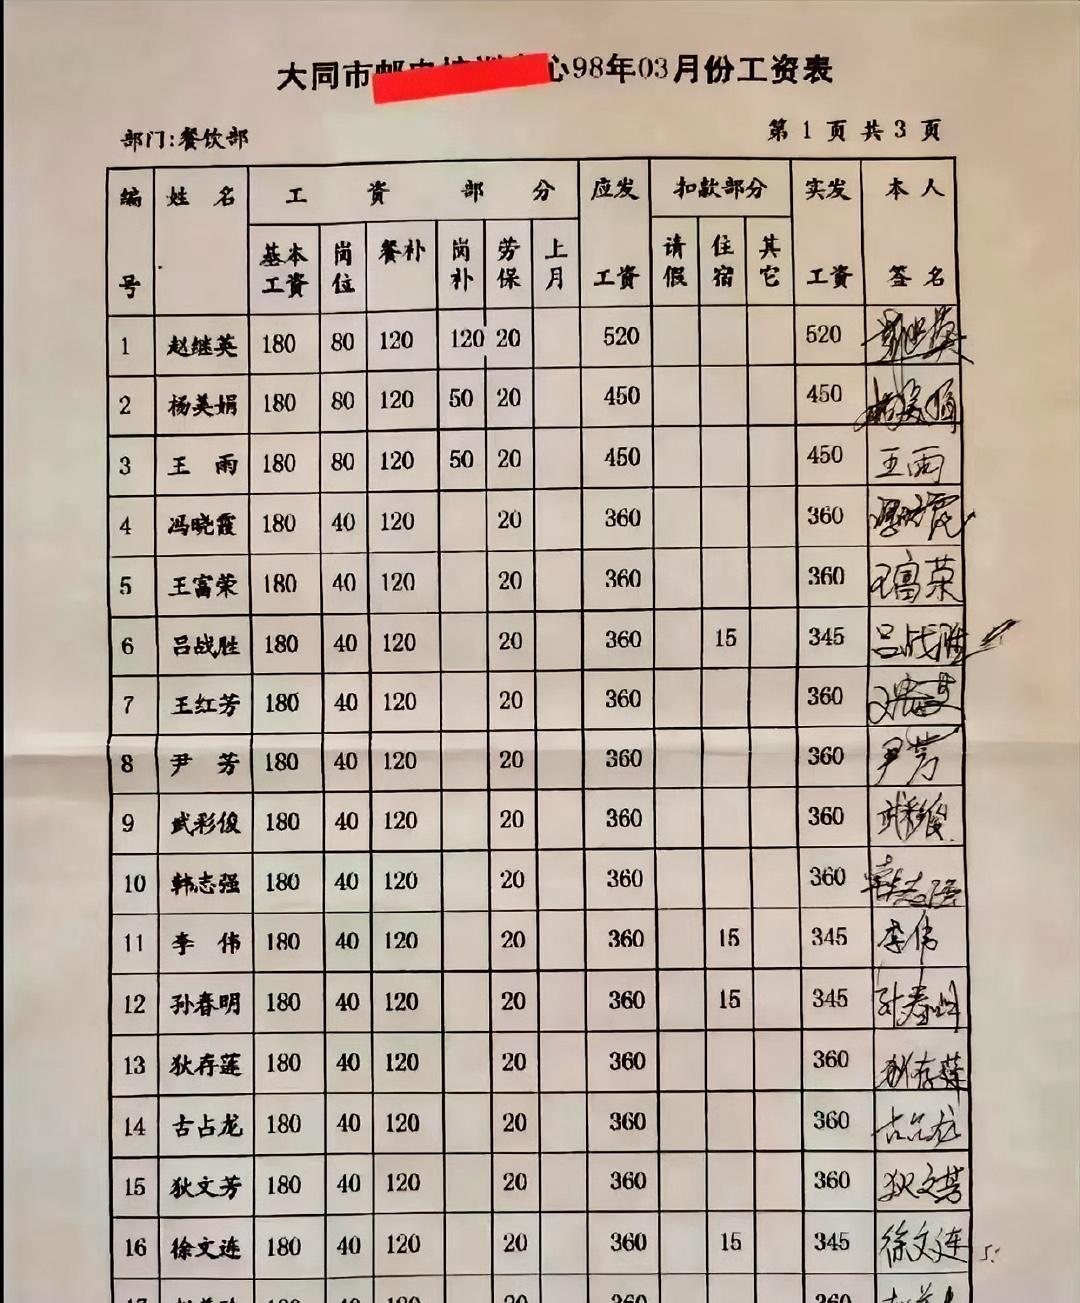 大同市邮电培训中心98年03月份工资表
部门:餐饮部 第 1 页 共 3 页
编号 姓 名 工 资 部 分 应发工资 扣款部分 实发工资 本人签名
基本工资 岗位 餐补 岗补 劳保 上月 请假 住宿 其它
1 赵继英 180 80 120 120 20 520 520
2 杨美娟 180 80 120 50 20 450 450 杨美娟
3 王 雨 180 80 120 50 20 450 450 王雨
4 冯晓霞 180 40 120 20 360 360
5 王富荣 180 40 120 20 360 360 王富荣
6 吕战胜 180 40 120 20 360 15 345 吕战胜
7 王红芳 180 40 120 20 360 360
8 尹 芳 180 40 120 20 360 360 尹芳
9 武彩俊 180 40 120 20 360 360 武彩俊
10 韩志强 180 40 120 20 360 360 韩志强
11 李 伟 180 40 120 20 360 15 345 李伟
12 孙春明 180 40 120 20 360 15 345 孙春明
13 狄存莲 180 40 120 20 360 360 狄存莲
14 古占龙 180 40 120 20 360 360 古占龙
15 狄文芳 180 40 120 20 360 360 狄文芳
16 徐文连 180 40 120 20 360 15 345 徐文连
17 180 40 120 20 360 360